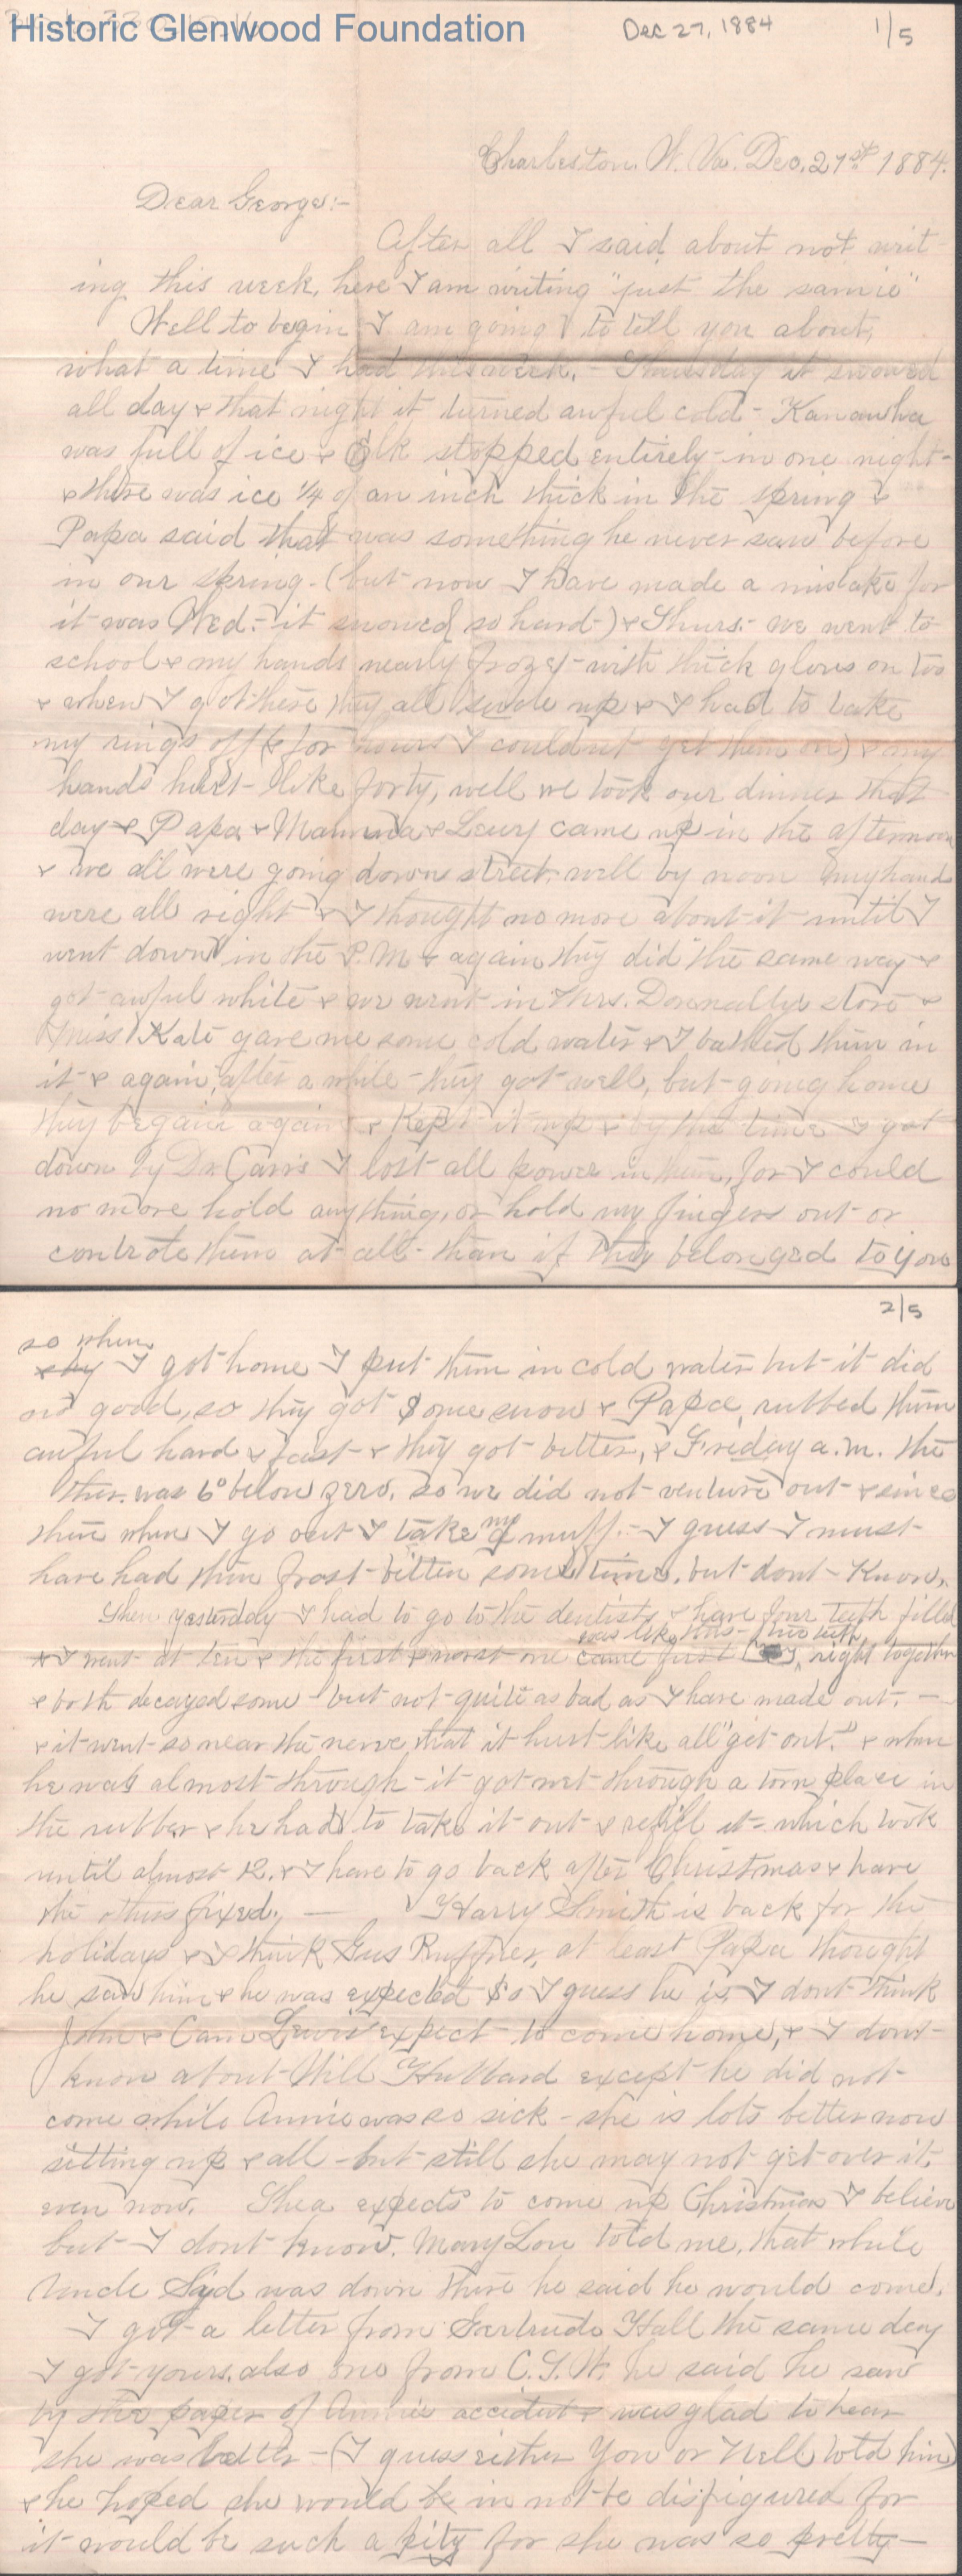 Historic Glenwood Foundation
Dec 27, 1884
1/5
Charleston, W. Va. Dec. 21st 1884.
Dear George:-
After all I said about not writ-
ing this week, here I am writing "just the samie"
Well to begin I am going to tell you about,
what a time I had this week. - Thursday it snowed
all day & that night it turned awful cold - Kanawha
was full of ice & Elk stopped entirely - in one night -
& there was ice 1/4 of an inch thick in the spring &
Papa said that was something he never saw before
in our spring. (but now I have made a mistake for
it was Wed. - it snowed so hard -) & Thurs. - we went to
school & my hands nearly froze - with thick gloves on too
& when I got there they all swole up & I had to take
my rings off (& for hours I couldn't get them on) & my
hands hurt - like forty, well we took our dinner that
day & Papa & Mamma & Lewy came up in the afternoon
& we all were going down street, well by noon my hands
were all right & I thought no more about it until I
went down in the P.M & again they did the same way &
got awful white & we went in Mrs. Donnally's store &
Miss Kate gave me some cold water & I bathed them in
it - & again, after a while - they got well, but - going home
they began again & kept it up & by the time I got
down by Dr Carr's I lost all power in them, for I could
no more hold anything, or hold my fingers out - or
controle them at all - than if they belonged to you
2/5
so when
I got home I put them in cold water but it did
no good, so they got some snow & Papa, rubbed them
awful hard & fast - & they got better, & Friday a.m. the
ther. was 6° below zero. so we did not venture out - & since
then when I go out I take my muff. - I guess I must
have had them frost-bitten some time, but dont know.
Then yesterday I had to go to the dentists & have four teeth filled
& I went at ten & the first & worst one
was like this - two teeth
came first right together
& both decayed some - but not quite as bad as I have made out. -
& it went so near the nerve that it hurt like all "get out." & when
he was almost through - it got wet through a torn place in
the rubber & he had to take it out & refill it - which took
until almost 12. & I have to go back after Christmas & have
the others fixed. - Harry Smith is back for the
holidays & I think Gus Ruffner, at least Papa thought
he saw him & he was expected so I guess he is, I dont think
John & Cam Lewis expect to come home, & I dont
know about Will Hubbard except he did not
come while Annie was so sick - she is lots better now
sitting up & all - but still she may not get over it
even now. Shea expects to come up Christmas I believe
but I dont know. Mary Lou told me, that while
Uncle Syd was down there he said he would come.
I got a letter from Gertrude Hall the same day
I got yours. also one from C.S.W. he said he saw
by the paper of Annie's accident & was glad to hear
she was better - (I guess either you or Nell told him)
& he hoped she would be in not be disfigured for
it would be such a pity for she was so pretty -